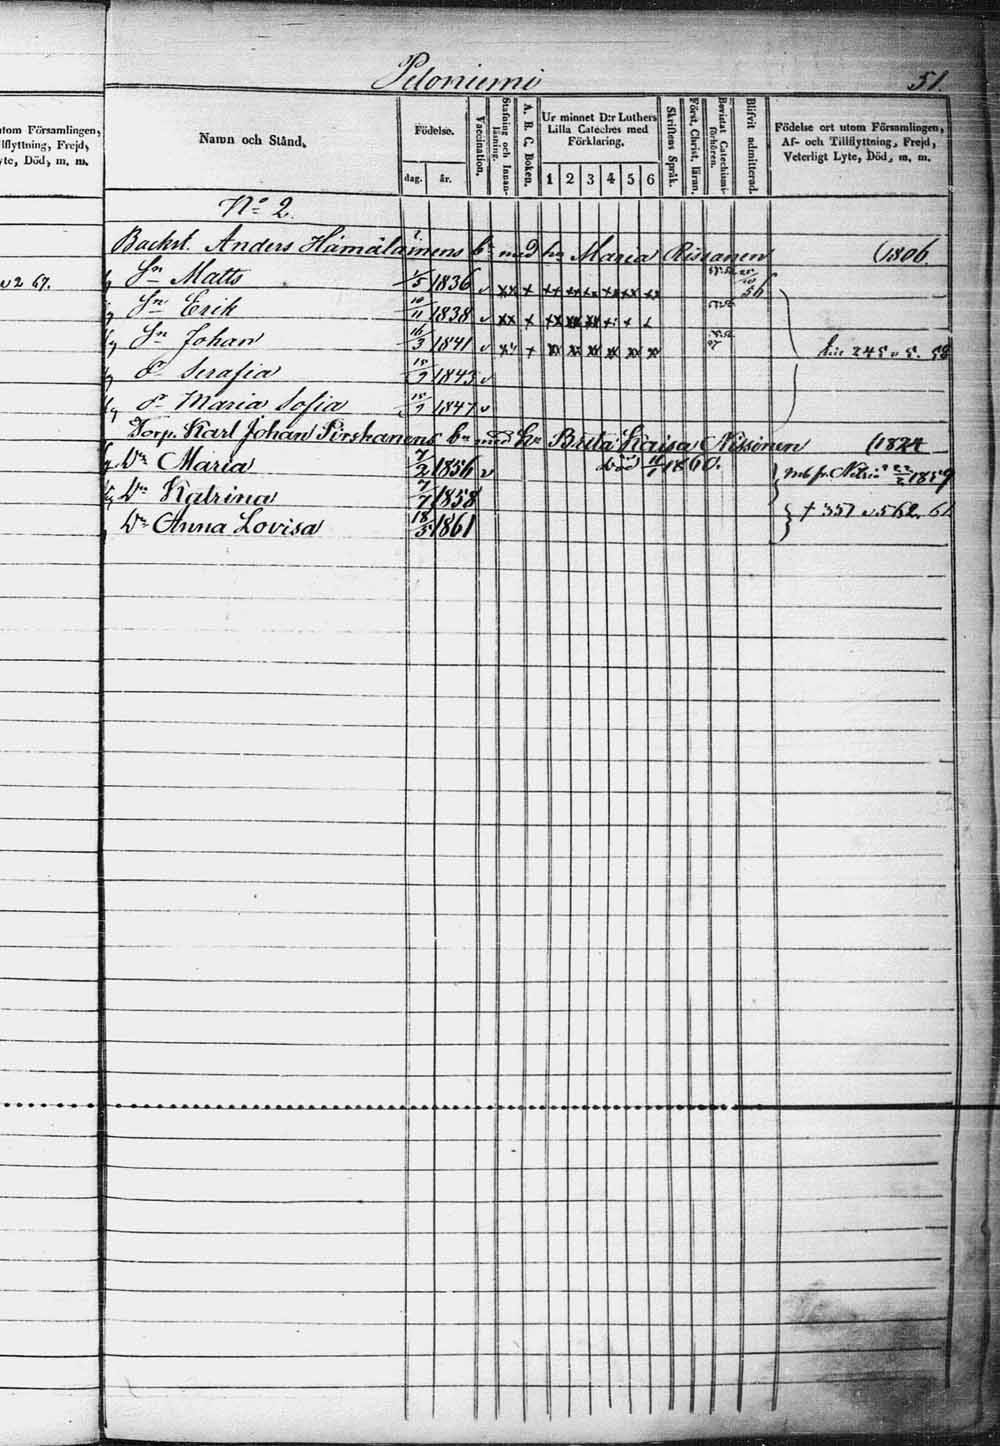 Peloniemi 51.
utom Församlingen,
llflyttning, Frejd,
yte, Död, m. m.
Namn och Stånd.
Födelse.
dag. år.
Vaccination.
Stafning och Innanläsning.
A. B. C. Boken.
Ur minnet D:r Luthers
Lilla Cateches med
Förklaring.
1 2 3 4 5 6
Skriftens Språk.
Först. Christ. läran.
Bevistat Catechismiförhören.
Blifvit admitterad.
Födelse ort utom Församlingen,
Af- och Tillflyttning, Frejd,
Veterligt Lyte, Död, m. m.
No 2.
Backst. Anders Hämäläinens bn med hu Maria Rissanen (1806.
Sn Matts 1/5 1836 56
v 2 67.
Sn Erik 10/11 1838
Sn Johan 16/3 1841 245 v 5. 58
Dr Serafia 15/9 1843 v
Dr Maria Sofia 15/9 1847 v
Torp. Karl Johan Pirskanens bn med hu Brita Kaisa Nissinen (1824
Dr Maria 7/2 1856 v Död 1860. 1859
Dr Katrina 7/7 1858
Dr Anna Lovisa 18/5 1861 † 351 v 562. 61